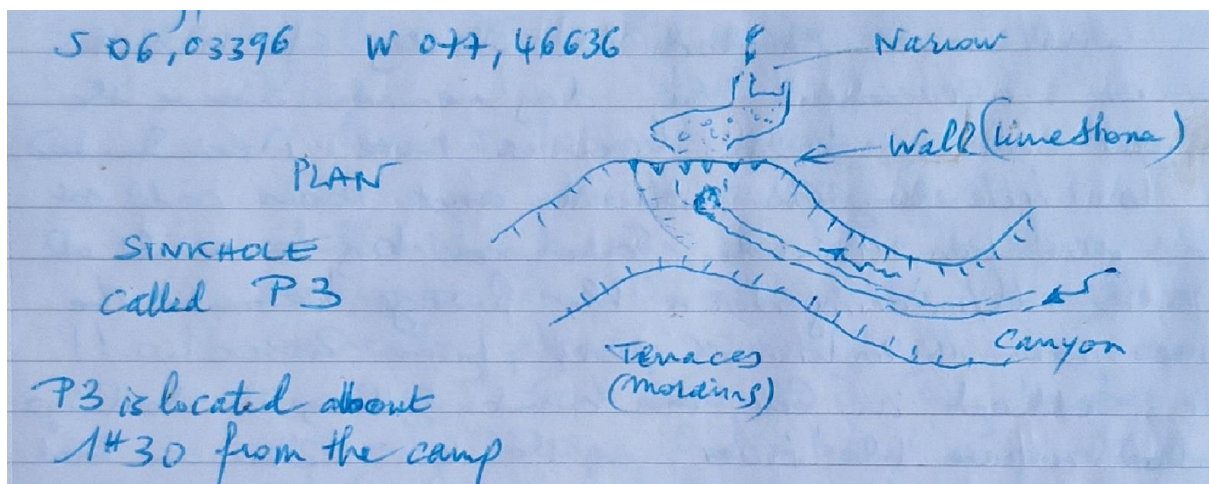 S 06,03396 W 077,46636
Narrow
Wall (limestone)
PLAN
SINKHOLE
called P3
Canyon
Terraces
P3 is located about
1H30 from the camp